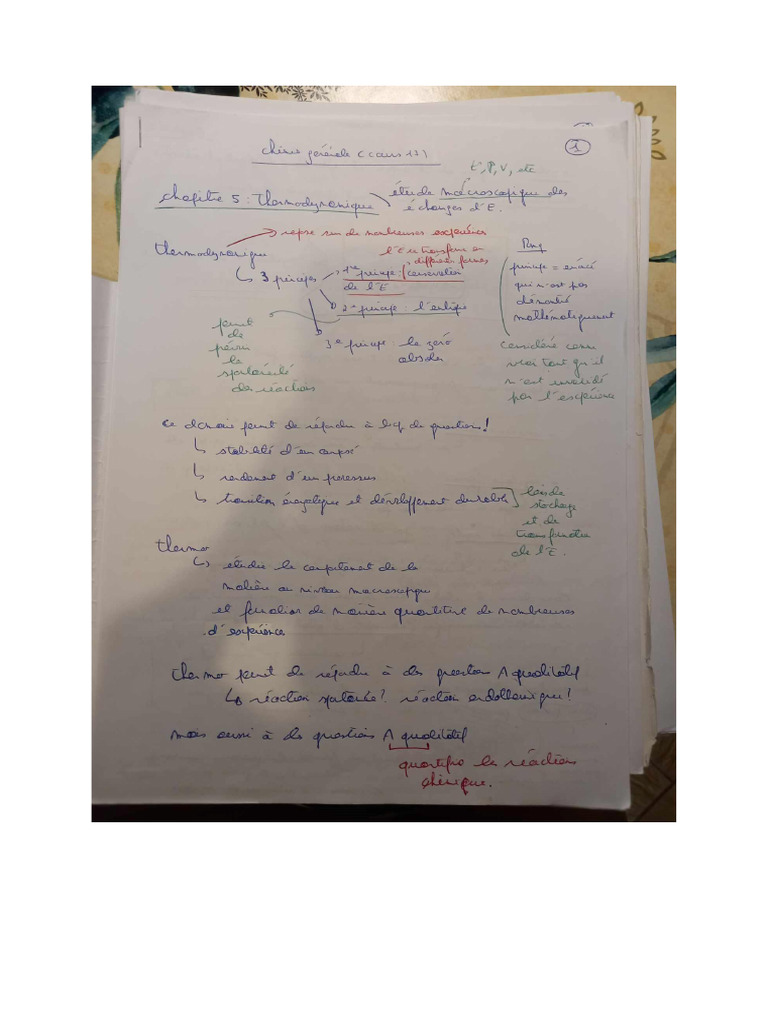 1
Chimie générale (cours 17)
t°, P, V, etc
chapitre 5 : Thermodynamique
étude macroscopique des
échanges d'E.
repose sur de nombreuses expériences
thermodynamique
↳ 3 principes
l'E se transforme en
différentes formes
1er principe : conservation
de l'E
2e principe : l'entropie
3e principe : le zéro
absolu
permet
de
prévoir
la
spontanéité
des réactions
Rmq
principe = énoncé
qui n'est pas
démontré
mathématiquement
considéré comme
vrai tant qu'il
n'est invalidé
par l'expérience
ce domaine permet de répondre à bcp de questions !
↳ stabilité d'un composé
↳ rendement d'un processus
↳ transition énergétique et développement durable
stockage
et de
de l'E.
thermo
↳ étudie le comportement de la
matière au niveau macroscopique
et de manière quantitive de nombreuses
d'expérience
thermo permet de répondre à des question A qualitatif
↳ réaction spontanée ? réaction endothermique !
mais aussi à des questions A qualitatif
la réaction
chimique.